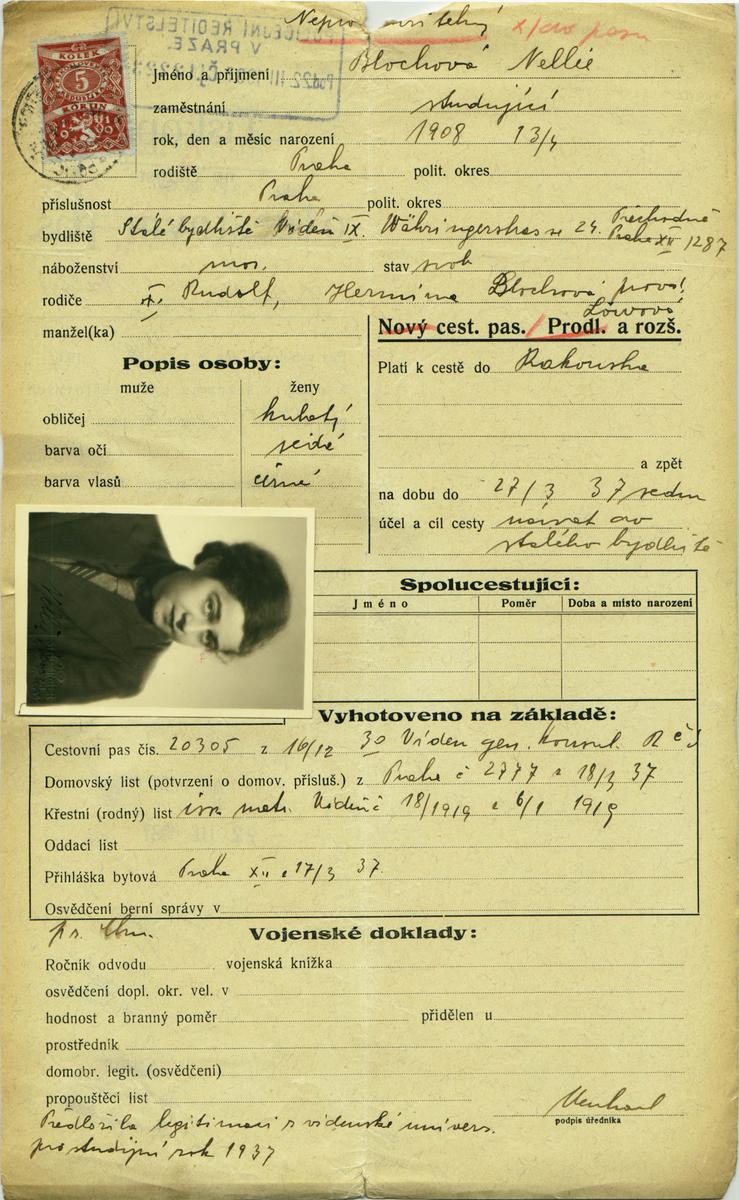 x/do pasu
POLICEJNÍ ŘEDITELSTVÍ
V PRAZE.
KOLEK
5
KORUN
Jméno a příjmení Blochová Nellie
zaměstnání studující
rok, den a měsíc narození 1908 13/4
rodiště Praha polit. okres
příslušnost Praha polit. okres
bydliště Stálé bydliště Vídeň IX. Währingerstrasse 24. Přechodně
Praha XII 1287
náboženství mos. stav svob
rodiče Rudolf, Hermina Blochová, prov.
Löwová
manžel(ka)
Nový cest. pas. / Prodl. a rozš.
Popis osoby:
muže ženy
Platí k cestě do Rakouska
obličej kulatý
barva očí šedé
barva vlasů černé
a zpět
na dobu do 27/3 37
účel a cíl cesty návrat do
stálého bydliště
Spolucestující:
Jméno Poměr Doba a místo narození
Vyhotoveno na základě:
Cestovní pas čís. 20305 z 16/12 30 Vídeň gen. konsul. R č s
Domovský list (potvrzení o domov. přísluš.) z Praha č 2777 z 18/3 37
Křestní (rodný) list isr. matr. Vídeň č 18/1919 z 6/1 1919
Oddací list
Přihláška bytová Praha XII z 17/3 37.
Osvědčení berní správy v
Vojenské doklady:
Ročník odvodu vojenská knížka
osvědčení dopl. okr. vel. v
hodnost a branný poměr přidělen u
prostředník
domobr. legit. (osvědčení)
propouštěcí list
podpis úředníka
Předložila legitimaci z vídeňské univers.
pro studijní rok 1937